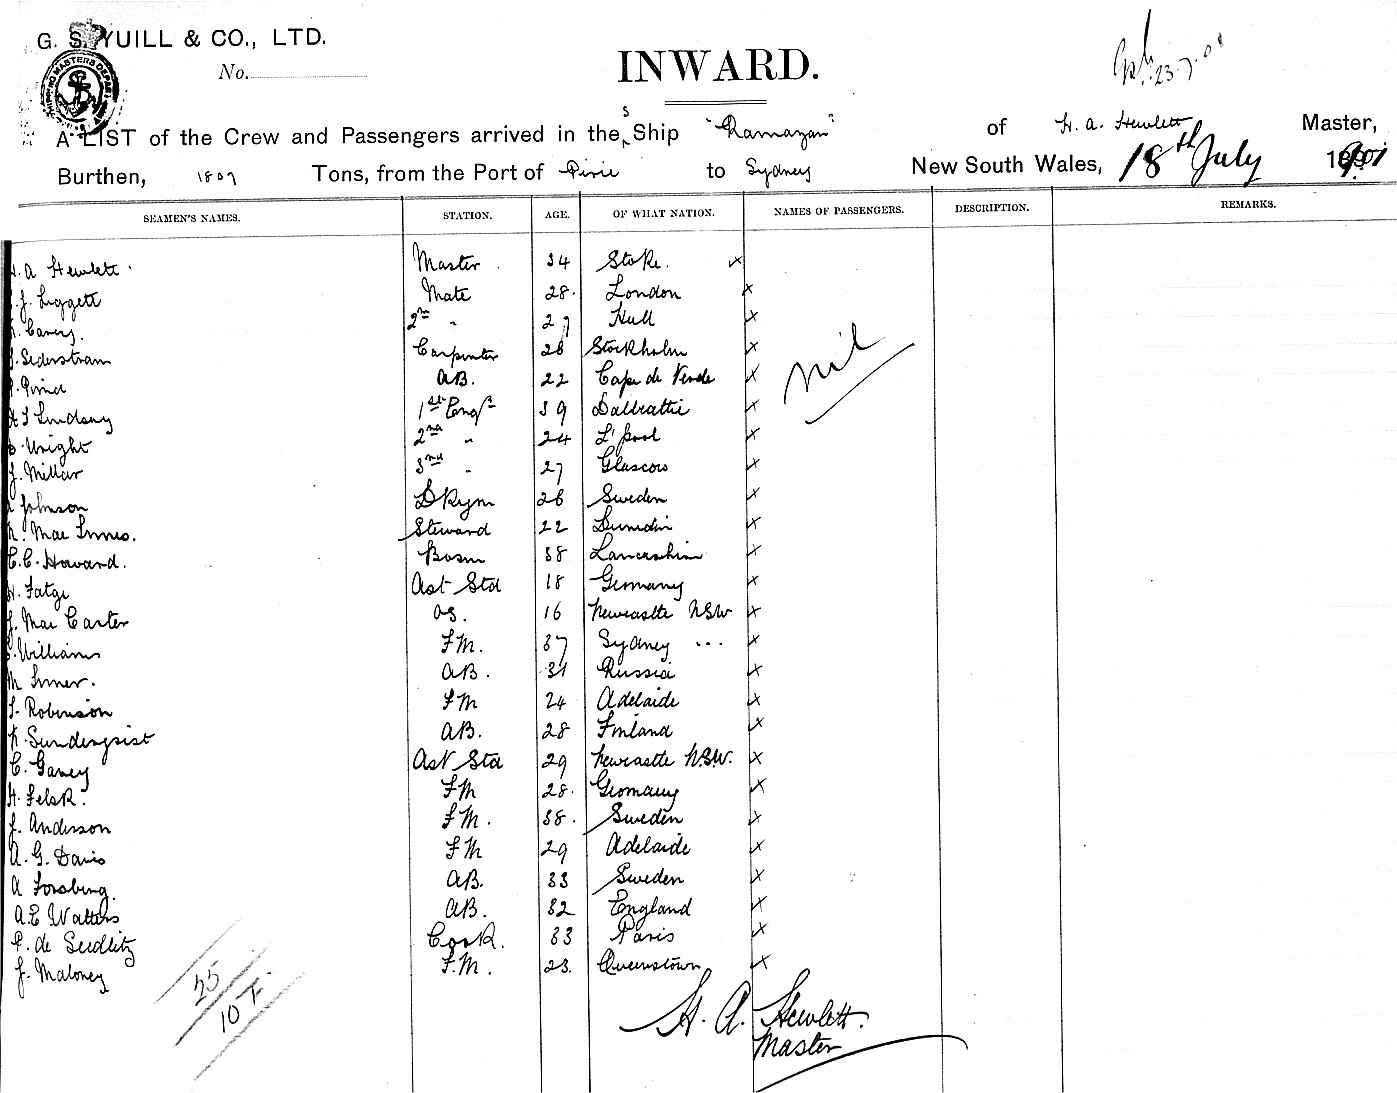 G. S. YUILL & CO., LTD.
No.
INWARD.
23.7.01
A LIST of the Crew and Passengers arrived in the S Ship "Ramazan" of H. A. Hewlett Master,
Burthen, 1807 Tons, from the Port of Pirie to Sydney New South Wales, 18th July 1901
SEAMEN'S NAMES. STATION. AGE. OF WHAT NATION. NAMES OF PASSENGERS. DESCRIPTION. REMARKS.
H. A Hewlett. Master 34 Stoke. x
J. Liggett Mate 28. London x
Cavey 2nd " 27 Hull x
Sederstram Carpenter 28 Stockholm x
AB. 22 Cape de Verde x
nil
Lindsay 1st Engr 39 Dalbeattie x
Wright 2nd " 24 L'pool x
J. Millar 3rd " 27 Glascow x
Johnson Dkym 26 Sweden x
Mac Innes. Steward 22 Dunedin x
C. C. Howard. Bosm 38 Lancashire x
H. Fatge Ast Std 18 Germany x
J. Mac Carter OS. 16 Newcastle NSW x
Williams F.M. 37 Sydney ... x
M Inner. AB. 31 Russia x
Robinson FM 24 Adelaide x
Sundergsist AB. 28 Finland x
C. Ganey Ast Std 29 Newcastle N.S.W. x
H. Felsk. FM 28. Germany x
J. Anderson F.M. 38. Sweden x
A. G. Davis FM 29 Adelaide x
A Forsberg AB. 33 Sweden x
A. E Watters AB. 32 England x
P. de Seidlitz Cook. 33 Paris x
J. Maloney F.M. 23. Queenstown x
25
10 F.
H. A. Hewlett.
Master